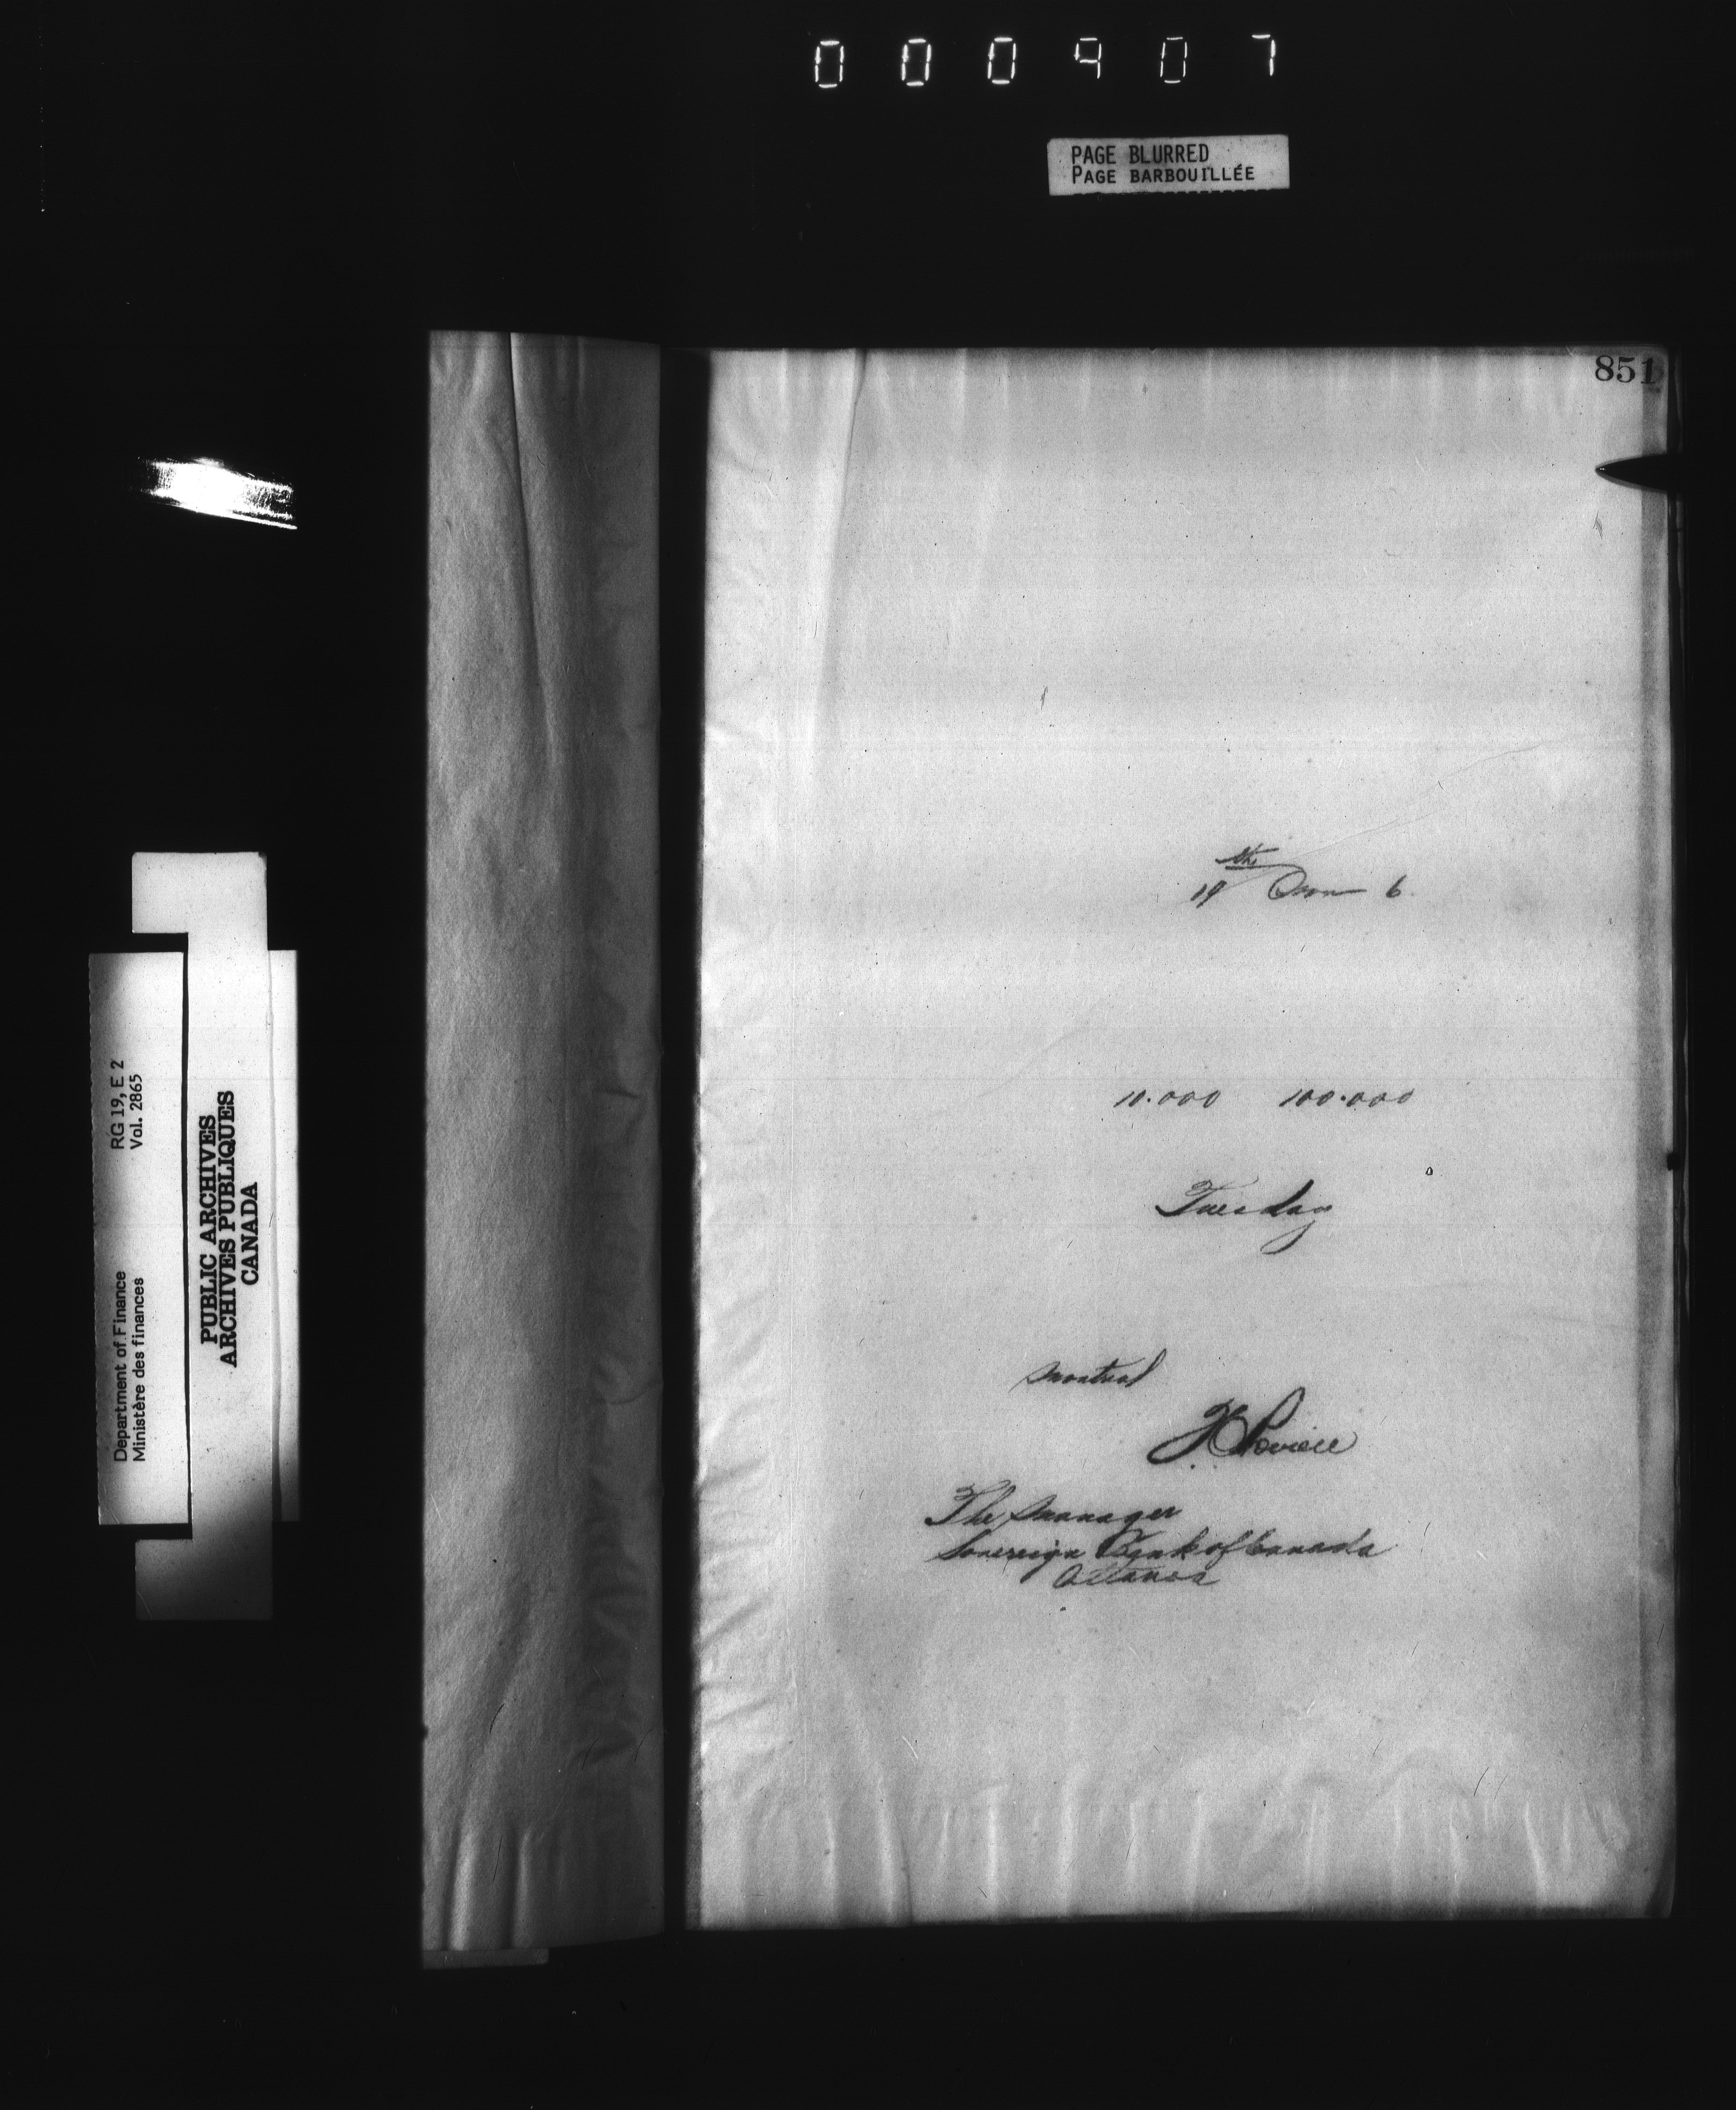 000907
PAGE BLURRED
PAGE BARBOUILLÉE
851
19th 6
10.000 100.000
Tuesday
Montreal
The Manager
Sovereign Bank of Canada
Ottawa
Department of Finance RG 19, E 2
Ministère des finances Vol. 2865
PUBLIC ARCHIVES
ARCHIVES PUBLIQUES
CANADA